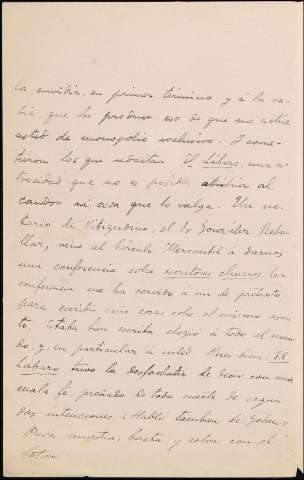 la envidia, en primer término y á la ra-
bia que les produce eso de que no actúe
usted de monopolio exclusivo. Y come-
tieron los que redactan El Lábaro, una a-
trocidad que no es posible atribuir al
candor ni cosa que lo valga. Un no-
tario de Vitigudino, el Sr González Rebo-
llar, vino al Círculo Mercantil á darnos
una conferencia sobre escritores charros (la
conferencia me ha servido á mí de pretexto
para escribir una cosa sobre el mismo asun-
to). Estaba bien escrita, elogió á todo el mun-
do, y, en particular á usted. Pues bien: El
Lábaro tuvo la desfachatez de decir con una
mala fe, preñada de toda suerte de segun-
das intenciones: Habló también de Galan.
Para muestra, basta y sobra con el
botón